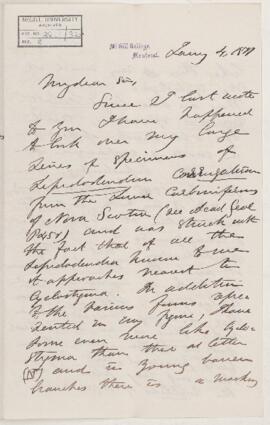 McGILL UNIVERSITY
ARCHIVES
ACC. NO.
REF. 2
McGill College,
Montreal.
Jany 4, 18
My dear Sir,
Since I last wrote
to you I have happened
to look over my large
series of specimens of
Lepidodendron corrugatum
from the Lower Carboniferous
of Nova Scotia (see Acad Geol
p 451) and was struck with
the fact that of all the
Lepidodendra known to me
it approaches nearest to
Cyclostigma. In addition
to the various forms repre
sented in my figure, I have
some even more like Cyclo
stigma than that at letter
and in young
branches there is a